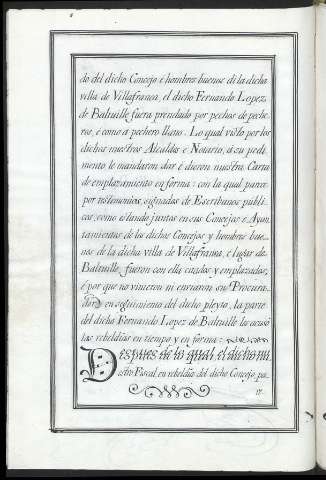 do del dicho Concejo è hombres buenos di la dicha
villa de Villafranca, el dicho Fernando Lopez
de Baltuille fuera prendado por pechos de peche
ros, è como a pechero llano. Lo qual visto por los
dichos nuestros Alcaldes è Notario, à su pedi
mento le mandaron dar è dieron nuestra Carta
de emplazamiento en forma: con la qual parece
por testimonios, signados de Escribanos públi
cos, como estando juntos en sus Concejos è Ayun
tamientos de los dichos Concejos y hombres bue
nos de la dicha villa de Villafranca, è lugar de
Baltuille, fueron con ella citados y emplazados,
è por que no vinieron ni enviaron su Procura
dor en seguimiento del dicho pleyto, la parte
del dicho Fernando Lopez de Baltuille les acusó
las rebeldias en tiempo y en forma:
Despues de lo qual, el dicho nu
estro Fiscal, en rebeldia del dicho Concejo, pa